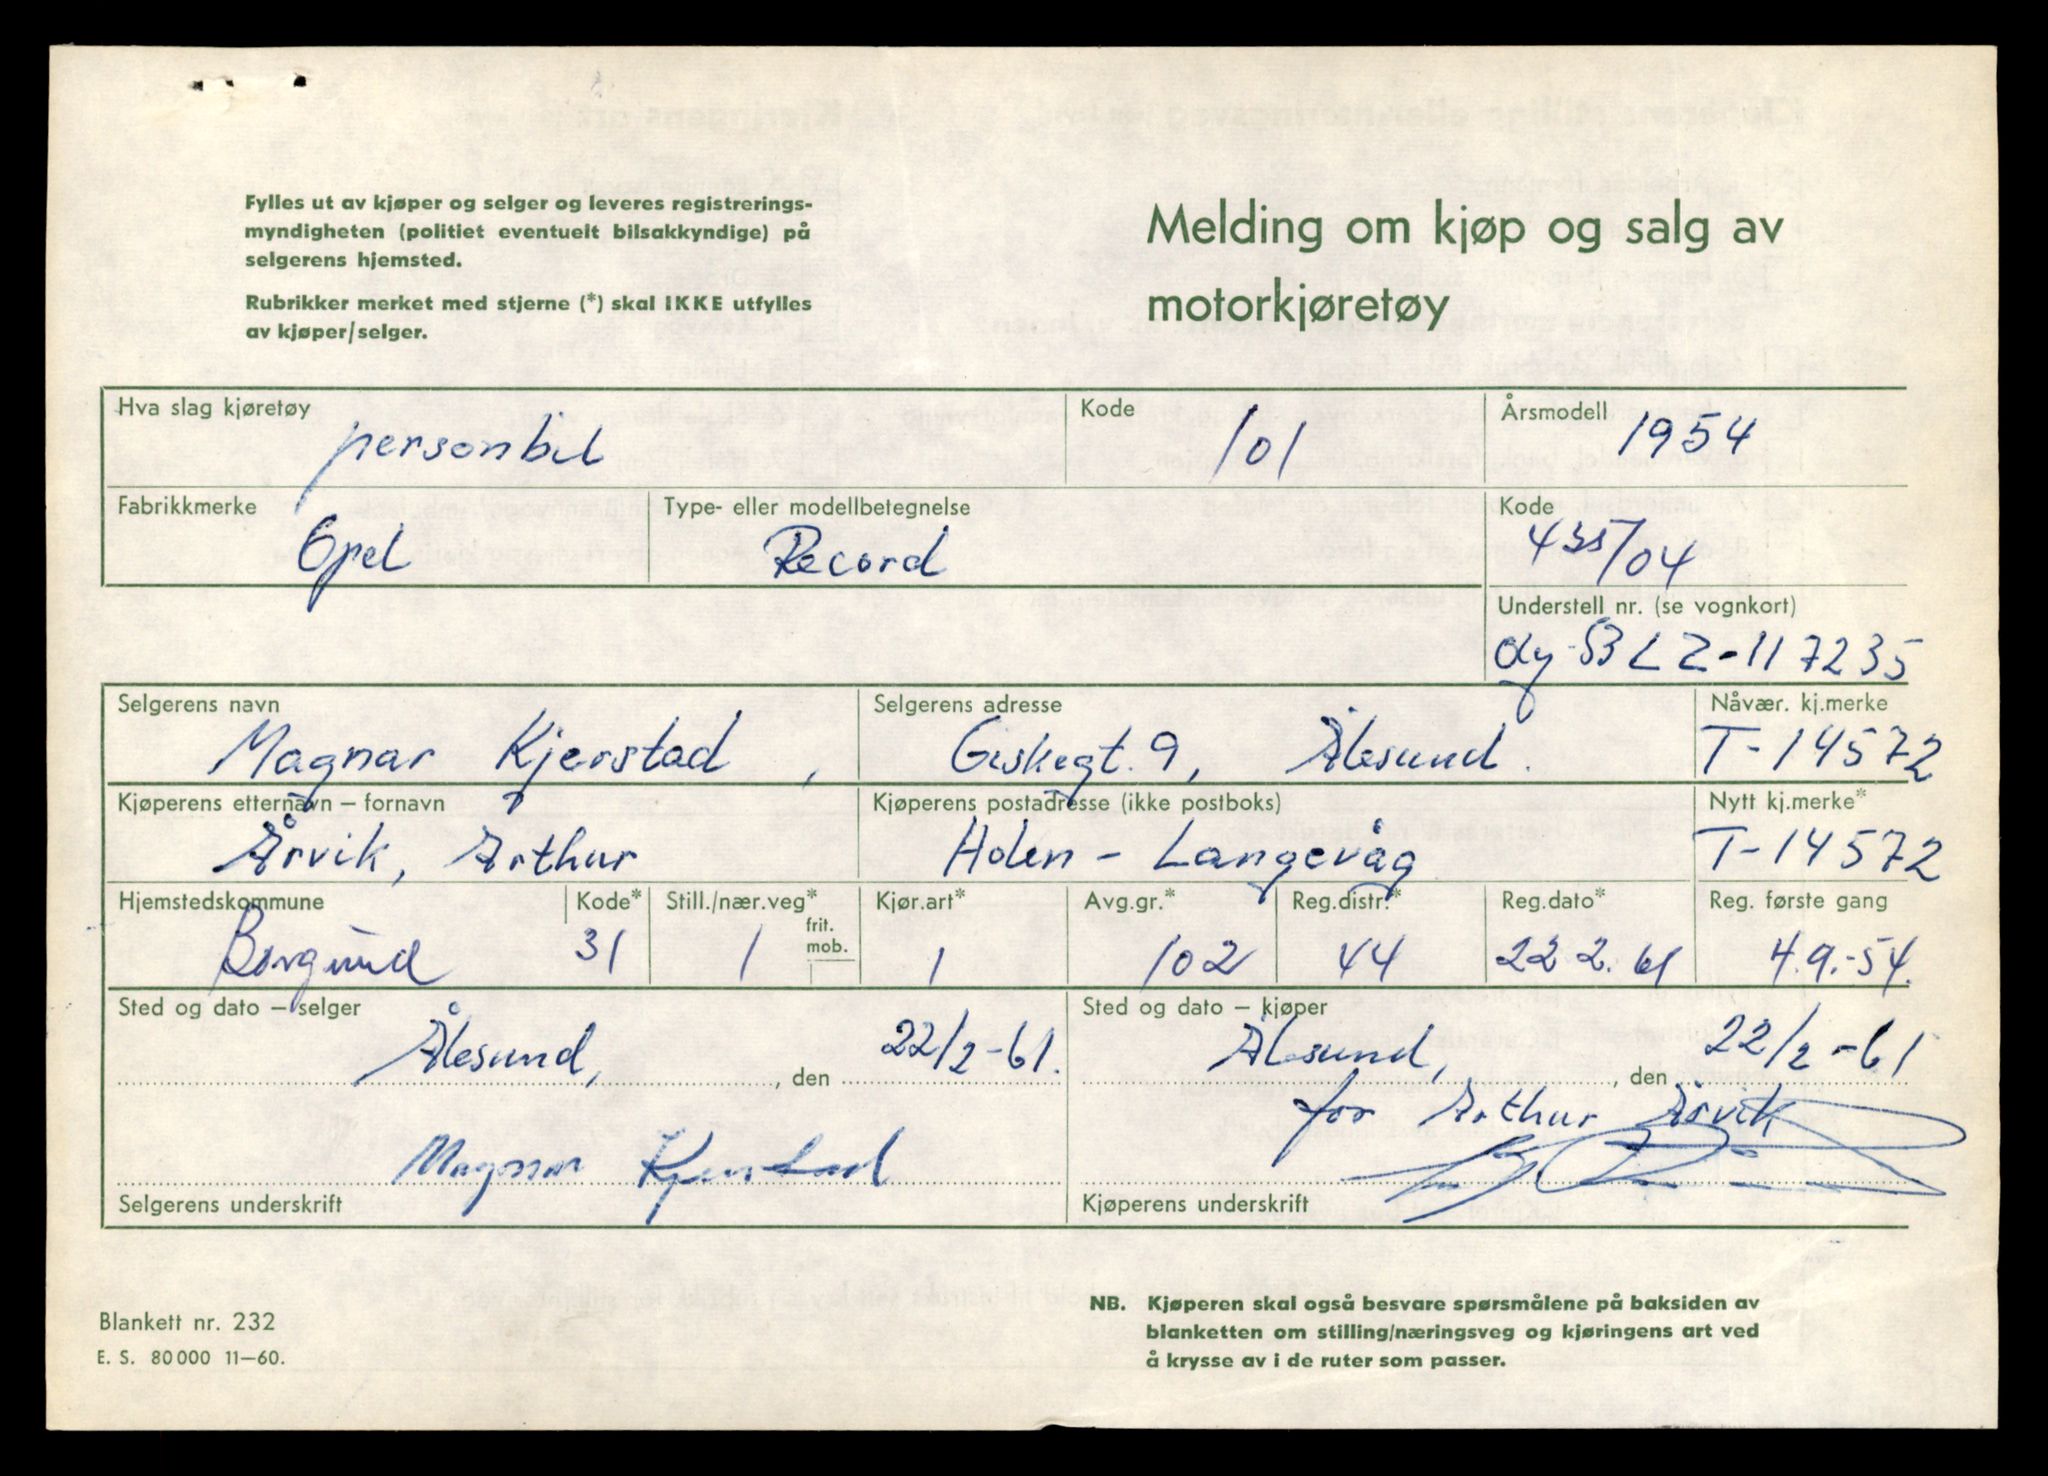 Fylles ut av kjøper og selger og leveres registrerings-
myndigheten (politiet eventuelt bilsakkyndige) på
selgerens hjemsted.
Rubrikker merket med stjerne (*) skal IKKE utfylles
av kjøper/selger.
Melding om kjøp og salg av
motorkjøretøy
Hva slag kjøretøy Kode Årsmodell
personbil 101 1954
Fabrikkmerke Type- eller modellbetegnelse Kode
Opel Record 435/04
Understell nr. (se vognkort)
Oly-53 LZ-117235
Selgerens navn Selgerens adresse Nåvær. kj.merke
Magnar Kjerstad, Giskegt. 9, Ålesund. T-14572
Kjøperens etternavn – fornavn Kjøperens postadresse (ikke postboks) Nytt kj.merke*
Årvik, Arthur Holen - Langevåg T-14572
Hjemstedskommune Kode* Still./nær.veg* Kjør.art* Avg.gr.* Reg.distr.* Reg.dato* Reg. første gang
frit.
mob.
Borgund 31 1 1 102 44 22 2. 61 4.9.-54.
Sted og dato – selger Sted og dato – kjøper
Ålesund, den 22/2-61. Ålesund, den 22/2-61
for Arthur Årvik
Magnar Kjerstad
Selgerens underskrift Kjøperens underskrift
Blankett nr. 232
E. S. 80000 11–60.
NB. Kjøperen skal også besvare spørsmålene på baksiden av
blanketten om stilling/næringsveg og kjøringens art ved
å krysse av i de ruter som passer.